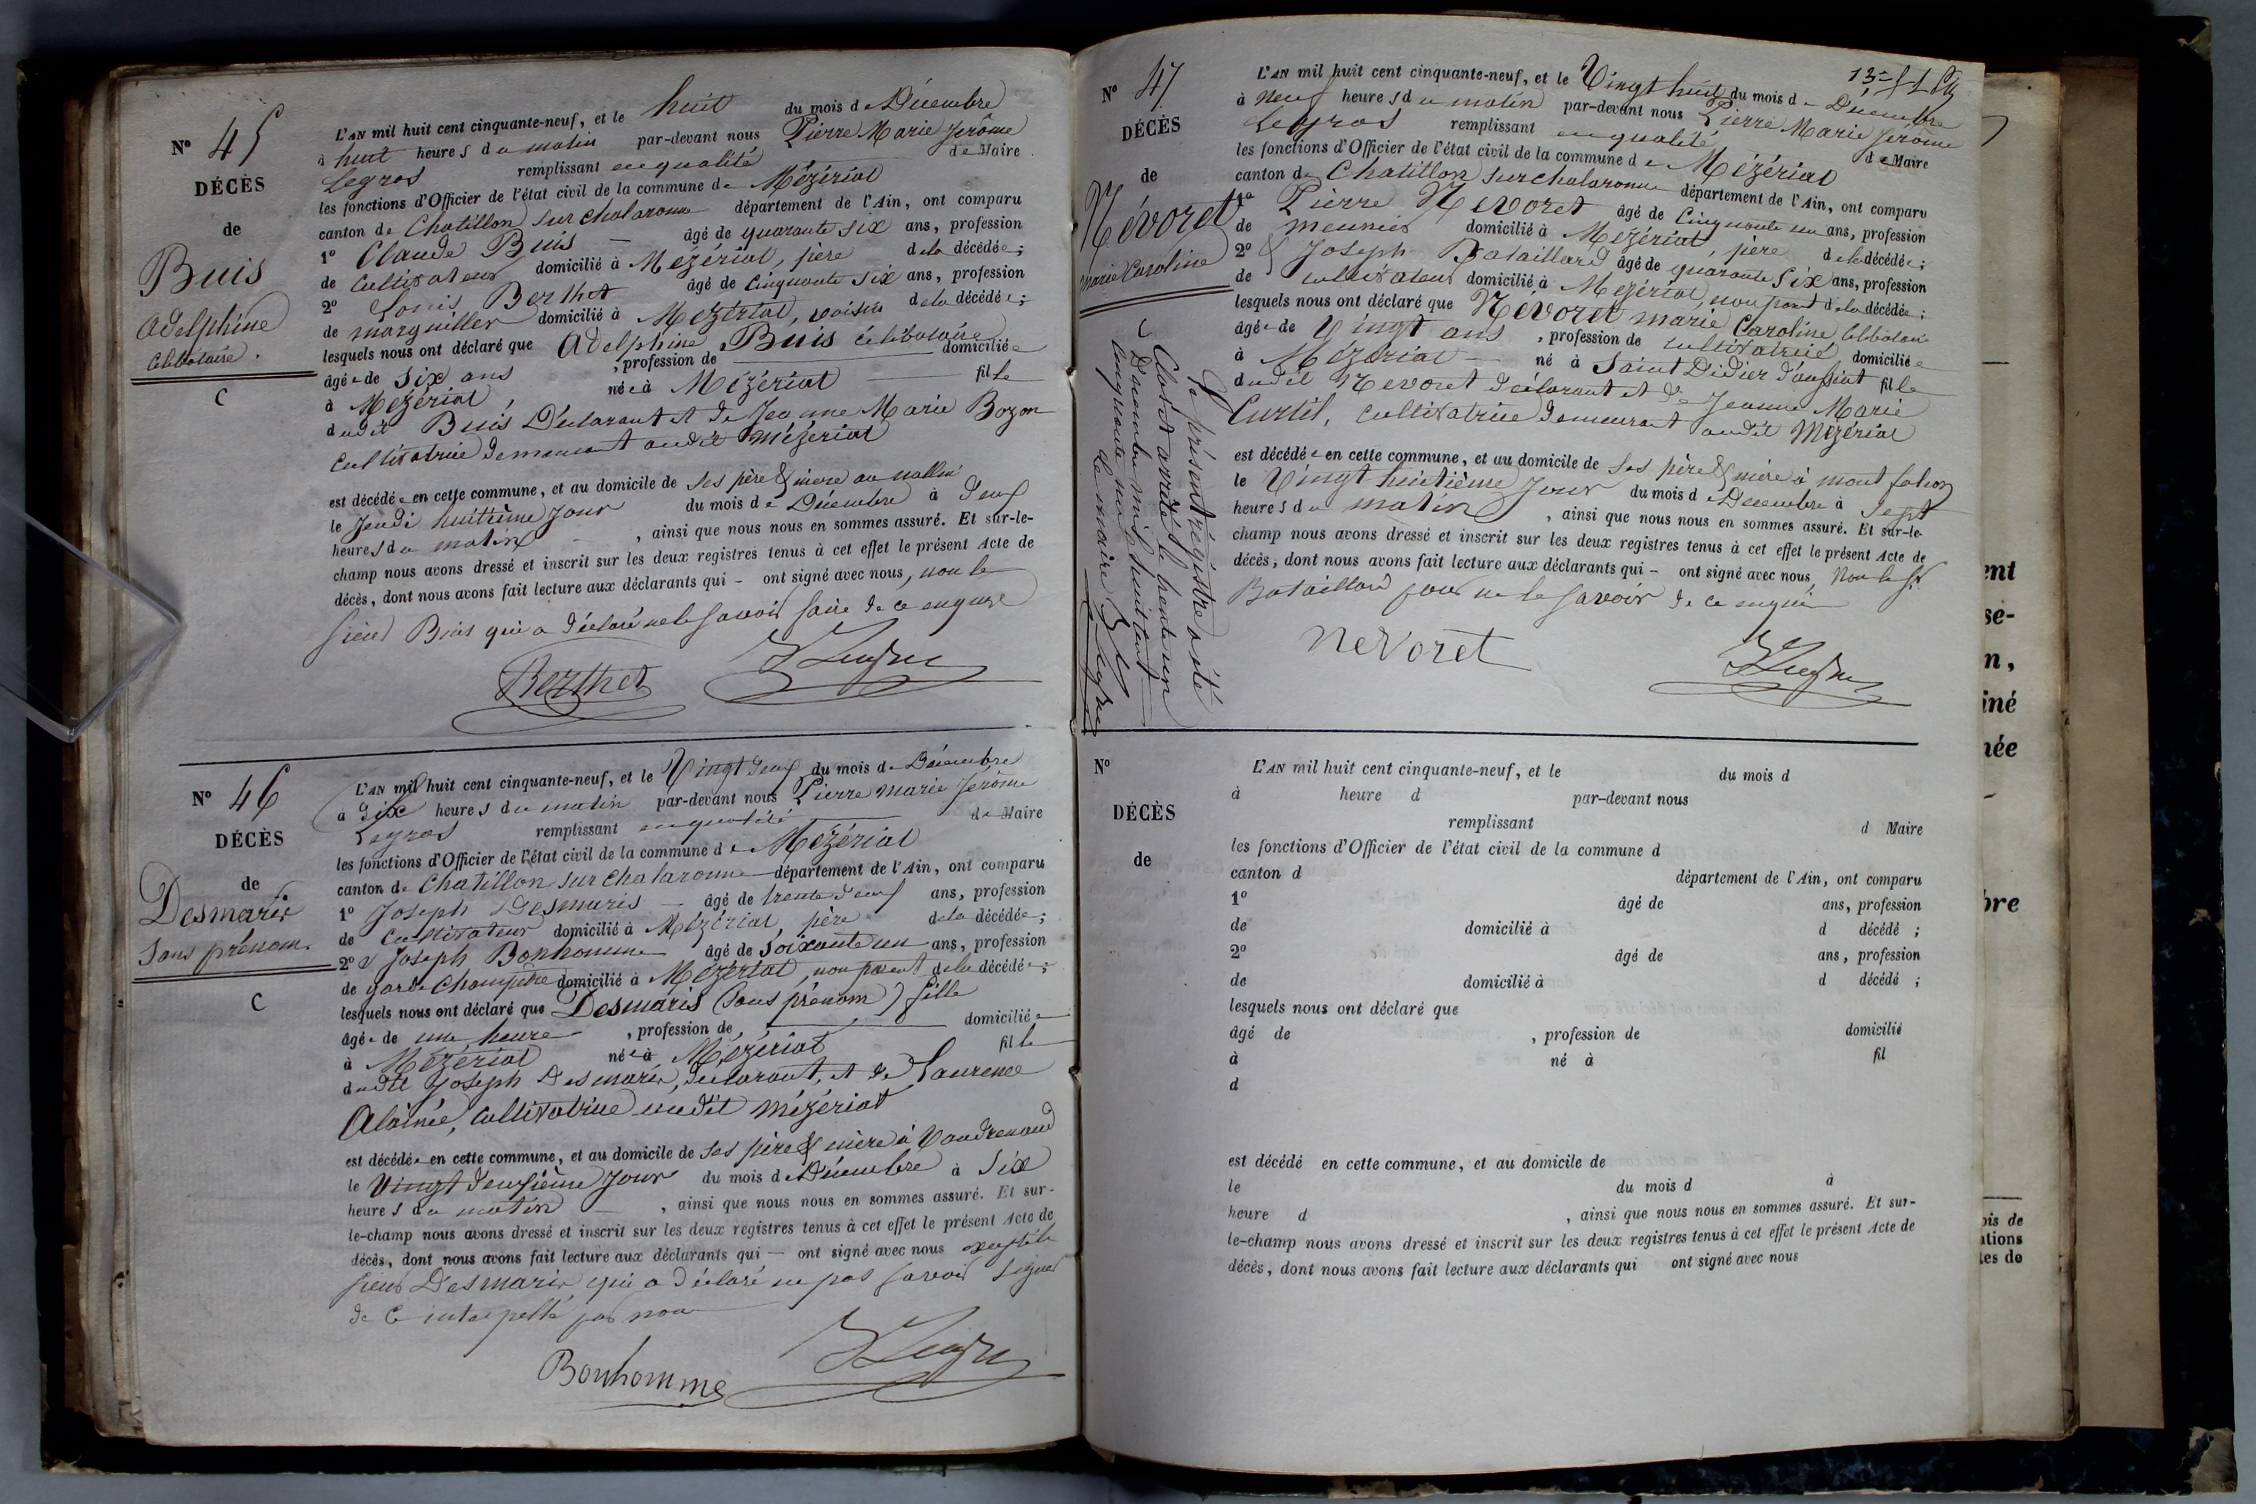 N° 45
DÉCÈS
de
Buis
Adelphine
Célibataire.
C
L'AN mil huit cent cinquante-neuf, et le huit du mois de Décembre
à huit heures du matin par-devant nous Pierre Marie Jerôme
Legros remplissant en qualité de Maire
les fonctions d'Officier de l'état civil de la commune de Mézériat
canton de Chatillon sur chalaronne département de l'Ain, ont comparu
1° Claude Buis âgé de quarante six ans, profession
de Cultivateur domicilié à Mézériat, père de la décédée;
2° Louis Berthet âgé de Cinquante six ans, profession
de marguiller domicilié à Mézériat, voisin de la décédée;
lesquels nous ont déclaré que Adelphine Buis célibataire
âgée de six ans , profession de domiciliée
à Mézériat née à Mézériat fille
dudit Buis Déclarant et de Jeanne Marie Bozon
cultivatrice demeurant audit Mézériat
est décédée en cette commune, et au domicile de ses père & mère au
le Jeudi huitième jour du mois de Décembre à deux
heures du matin , ainsi que nous nous en sommes assuré. Et sur-le-
champ nous avons dressé et inscrit sur les deux registres tenus à cet effet le présent Acte de
décès, dont nous avons fait lecture aux déclarants qui - ont signé avec nous, non le
sieur Buis qui a déclaré ne le savoir faire de ce enquis
Berthet Legros
N° 46
DÉCÈS
de
Desmaris
Sans prénom.
C
L'AN mil huit cent cinquante-neuf, et le Vingt deux du mois de Décembre
à dix heures du matin par-devant nous Pierre Marie Jérôme
Legros remplissant en qualité de Maire
les fonctions d'Officier de l'état civil de la commune de Mézériat
canton de Chatillon sur chalaronne département de l'Ain, ont comparu
1° Joseph Desmaris âgé de trente deux ans, profession
de Cultivateur domicilié à Mézériat, père de la décédée;
2° & Joseph Bonhomme âgé de soixante un ans, profession
de garde Champêtre domicilié à Mézériat, non parent de la décédée;
lesquels nous ont déclaré que Desmaris (sans prénom) fille
âgée de une heure , profession de domiciliée
à Mézériat née à Mézériat fille
dudit Joseph Desmaris, déclarant, et de Laurence
cultivatrice audit Mézériat
est décédée en cette commune, et au domicile de ses père & mère à Vaudrenoud
le Vingt deuxième jour du mois de Décembre à Six
heures du matin , ainsi que nous nous en sommes assuré. Et sur-
le-champ nous avons dressé et inscrit sur les deux registres tenus à cet effet le présent Acte de
décès, dont nous avons fait lecture aux déclarants qui — ont signé avec nous excepté le
sieur Desmaris qui a déclaré ne pas savoir signer
de ce interpellé par nous
Bonhomme Legros
N° 47
DÉCÈS
de
Névoret
Marie Caroline
C
L'AN mil huit cent cinquante-neuf, et le Vingt huit du mois de Décembre
à neuf heures du matin par-devant nous Pierre Marie Jérôme
Legros remplissant en qualité de Maire
les fonctions d'Officier de l'état civil de la commune de Mézériat
canton de Chatillon sur chalaronne département de l'Ain, ont comparu
1° Pierre Nevoret âgé de Cinquante un ans, profession
de meunier domicilié à Mézériat père de la décédée;
2° & Joseph Bataillard âgé de quarante six ans, profession
de cultivateur domicilié à Mézériat, non parent de la décédée;
lesquels nous ont déclaré que Névoret Marie Caroline Célibataire
âgée de Vingt ans , profession de cultivatrice domiciliée
à Mézériat né à Saint Didier d'aussiat fille
dudit Nevoret déclarant et de Jeanne Marie
Curtil, cultivatrice demeurant audit Mézériat
est décédée en cette commune, et au domicile de ses père & mère à mont falcon
le Vingt huitième jour du mois de Décembre à Sept
heures du matin , ainsi que nous nous en sommes assuré. Et sur-le-
champ nous avons dressé et inscrit sur les deux registres tenus à cet effet le présent Acte de
décès, dont nous avons fait lecture aux déclarants qui - ont signé avec nous, Non le Sr
Bataillard pour ne le savoir de ce enquis
Nevoret Legros
Le présent régistre a été
Clos et arrêté le trente un
Décembre mil huit cent
cinquante neuf
Le maire Legros
N°
DÉCÈS
de
L'AN mil huit cent cinquante-neuf, et le du mois d
à heure d par-devant nous
remplissant d Maire
les fonctions d'Officier de l'état civil de la commune d
canton d département de l'Ain, ont comparu
1° âgé de ans, profession
de domicilié à d décédé ;
2° âgé de ans, profession
de domicilié à d décédé ;
lesquels nous ont déclaré que
âgé de , profession de domicilié
à né à fil
d
est décédé en cette commune, et au domicile de
le du mois d à
heure d , ainsi que nous nous en sommes assuré. Et sur-
le-champ nous avons dressé et inscrit sur les deux registres tenus à cet effet le présent Acte de
décès, dont nous avons fait lecture aux déclarants qui ont signé avec nous